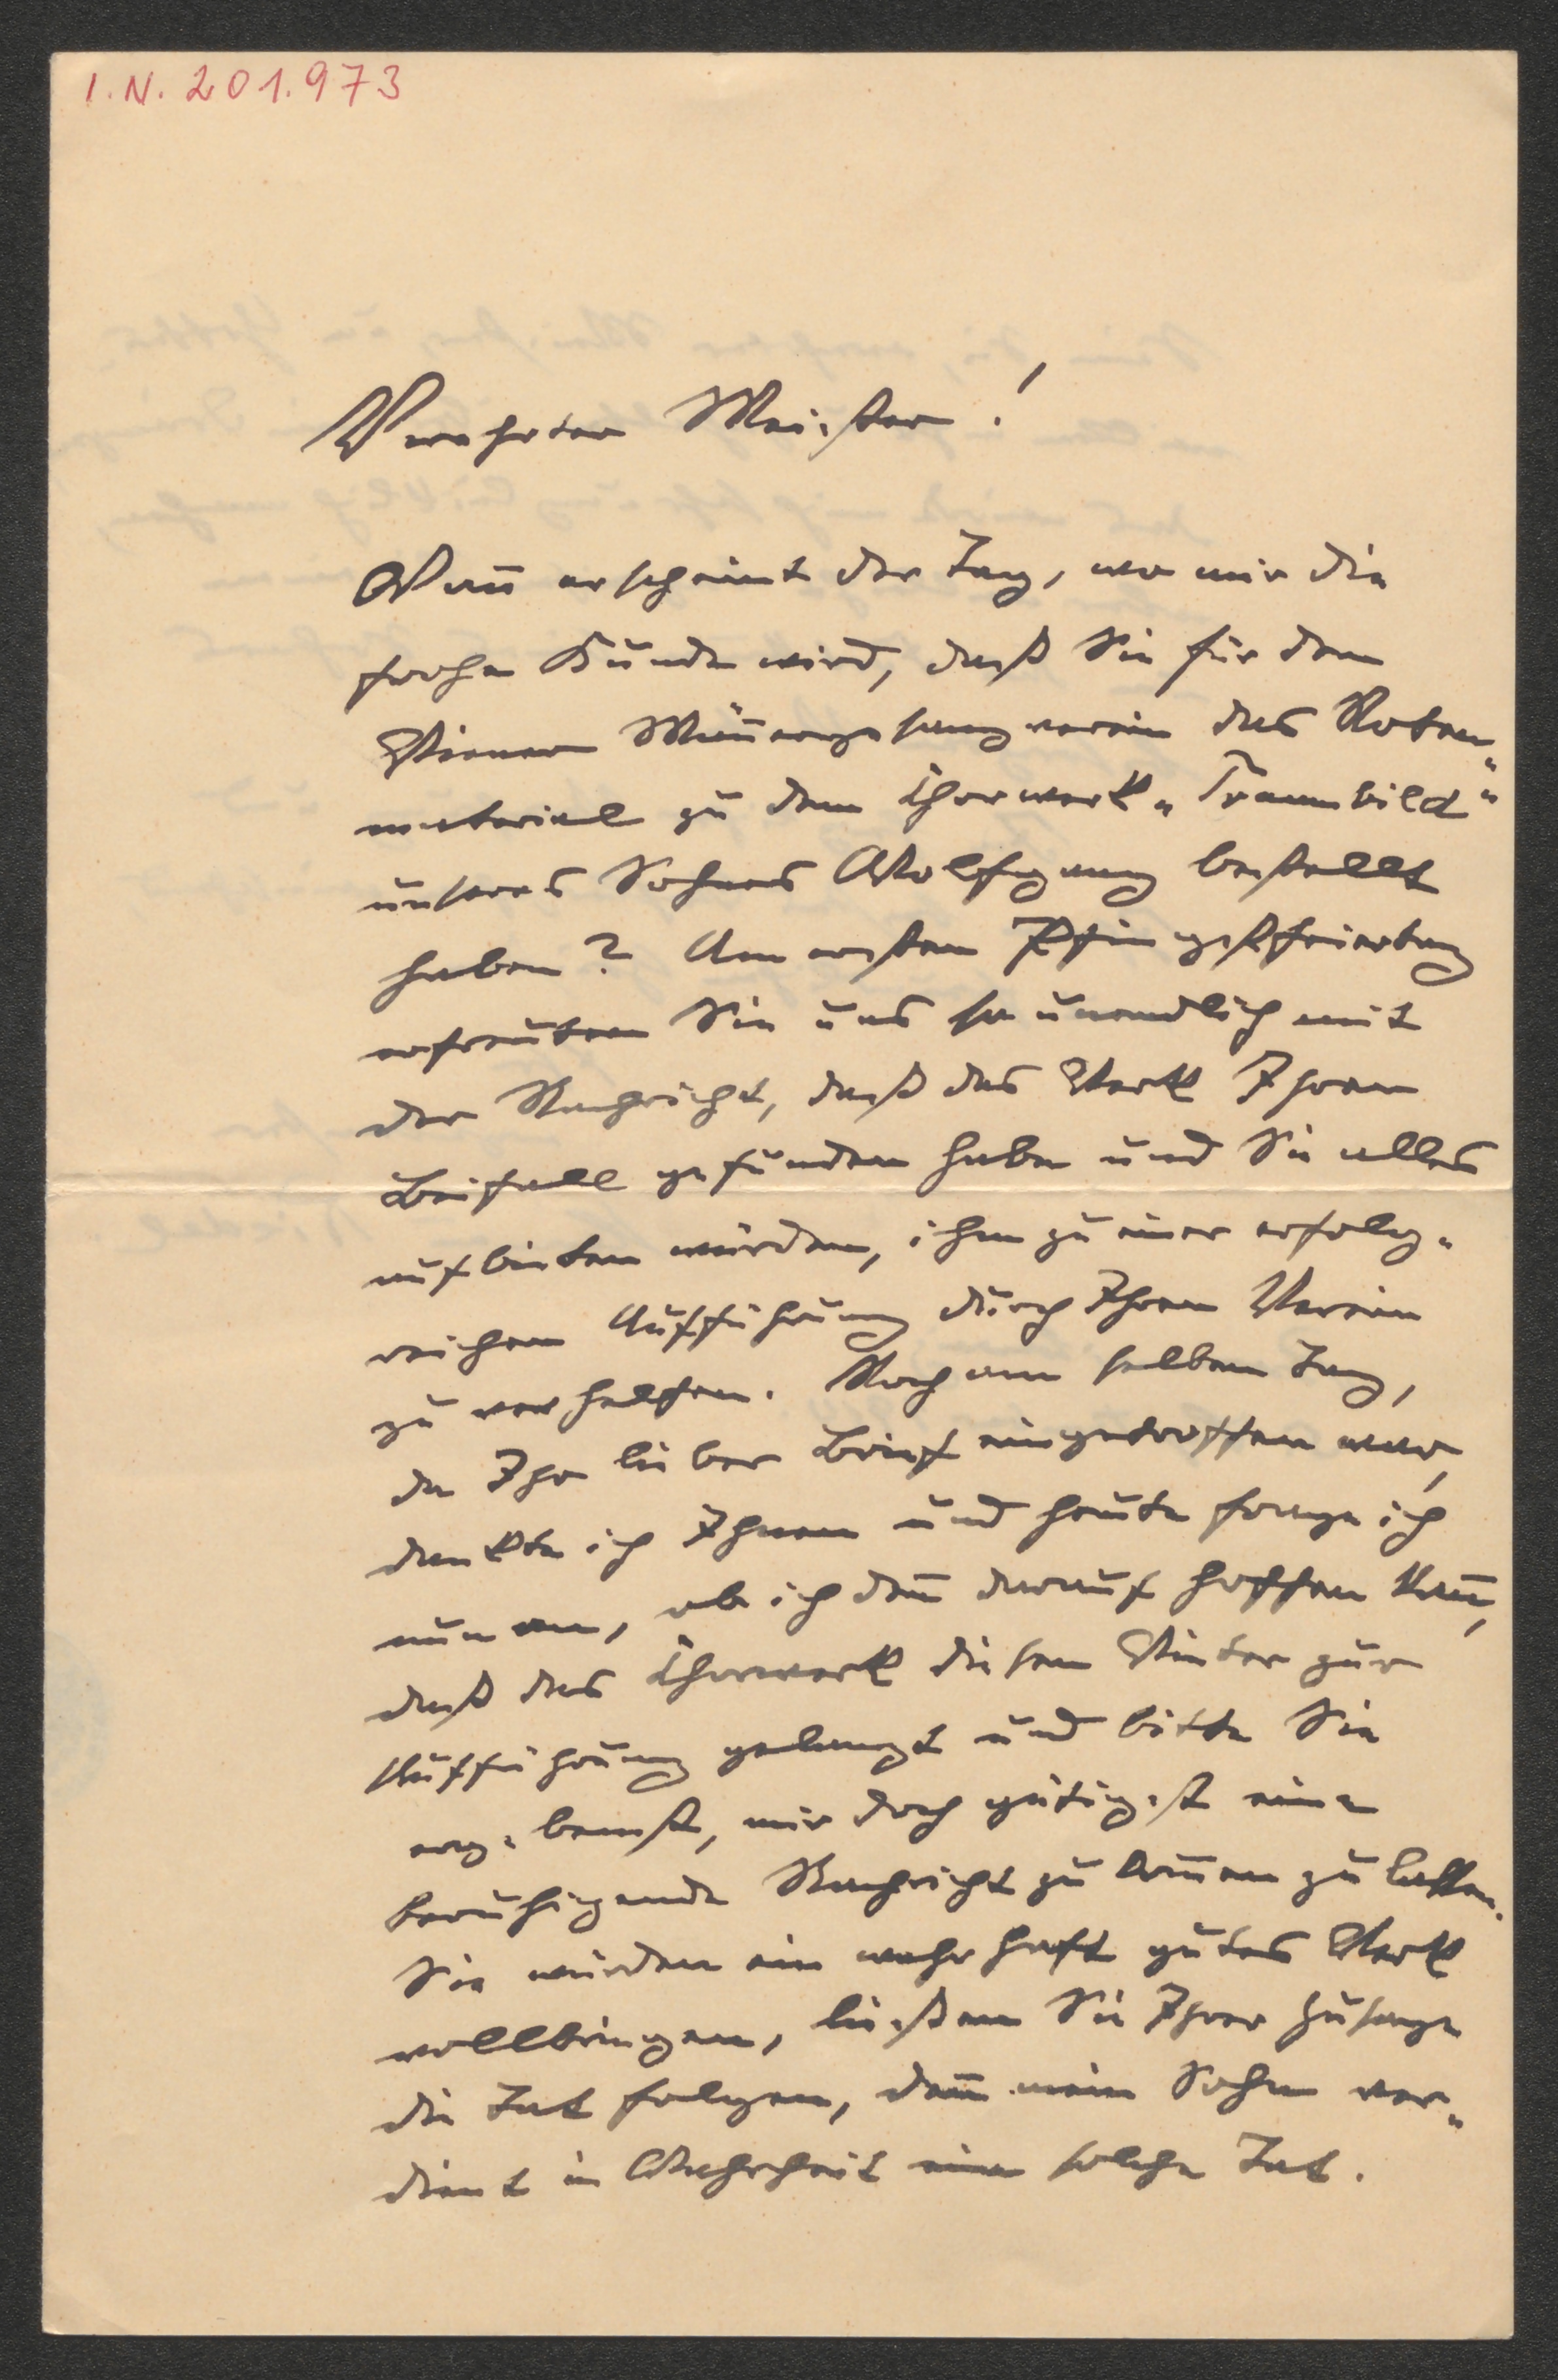 I.N. 201.973
Verehrter Meister!
Wann erscheint der Tag, wo mir die
frohe Kunde wird, daß Sie für den
Wiener Männergesangverein das Noten-
material zu dem Chorwerk „Traumbild“
unseres Sohnes Wolfgang bestellt
haben? Am ersten Pfingstfeiertag
erfreuten Sie uns so unendlich mit
der Nachricht, daß das Werk Ihren
Beifall gefunden habe und Sie alles
aufbieten würden, ihm zu einer erfolg-
reichen Aufführung durch Ihren Verein
zu verhelfen. Noch am selben Tag,
da Ihr lieber Brief eingetroffen war,
dankte ich Ihnen und heute frage ich
nun an, ob ich denn darauf hoffen kann,
daß das Chorwerk diesen Winter zur
Aufführung gelangt und bitte Sie
ergebenst, mir doch gütigst eine
beruhigende Nachricht zu kommen zu lassen.
Sie würden ein wahrhaft gutes Werk
vollbringen, ließen Sie Ihrer Zusage
die Tat folgen, denn mein Sohn ver-
dient in Wahrheit eine solche Tat.